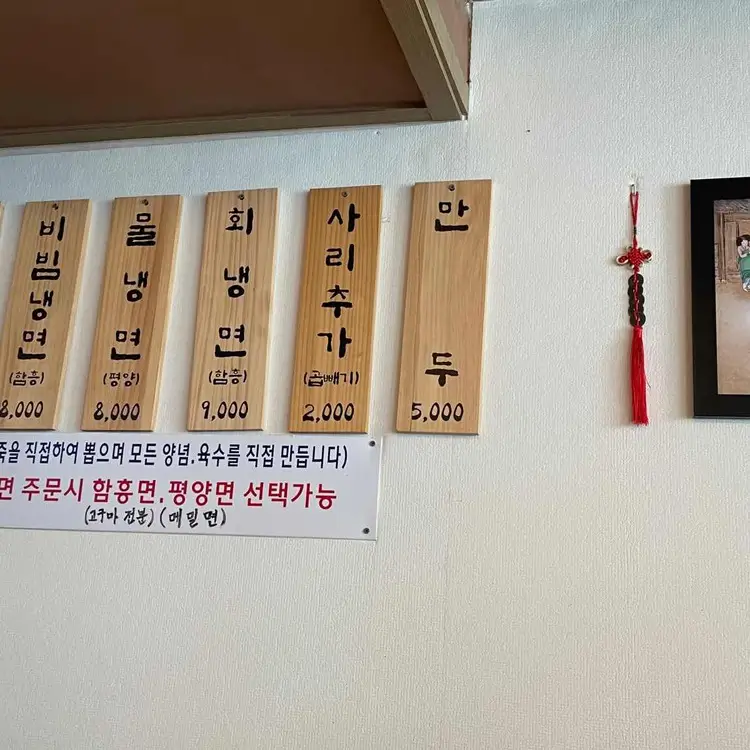 비빔냉면
(함흥)
8,000
물냉면
(평양)
8,000
회냉면
(함흥)
9,000
사리추가
(곱빼기)
2,000
만두
5,000
죽을 직접하여 뽑으며 모든 양념.육수를 직접 만듭니다)
면 주문시 함흥면.평양면 선택가능
(고구마 전분) (메밀면)